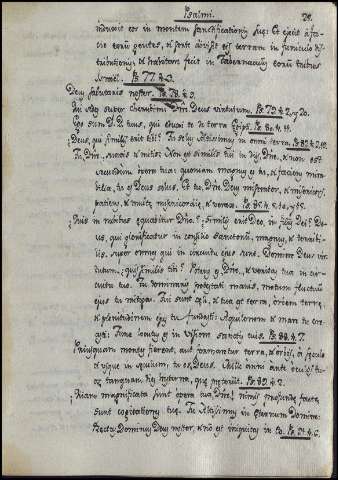 Psalmi.
induxit eos in montem sanctificationis suæ: Et ejecit à facie
eorū gentes, & sorte divisit eis terram in funiculo dis
tributionis; & habitare fecit in tabernaculis eorū tribus
Israël. Ps. 77. ℣.
Deus salutaris noster. Ps. 78. ℣. 9.
super cherubim Dñe Deus virtutum. Ps. 79.
Ego sum D. D. tuus, qui eduxi te de terra Egipti. Ps. 80. ℣. 11.
Deus, quis similis erit tibi? Tu solus Altissimus in omni terra. Ps. 82.
Tu Dñe, suavis & mitis: Non est similis tui in dijs, Dñe, & non est
secundum opera tua: quoniam magnus es tu, & faciens mira
bilia, tu es Deus solus. Et tu, Dñe, Deus miserator, & misericors,
patiens, & multæ misericordiæ, & verax. Ps. 85.
Quis in nubibus æquabitur Dño? Similis erit Deo, in filijs Dei? De
us, qui glorificatur in consilio sanctorū, magnus, & terribi
lis super omnes qui in circuitu ejus sunt. Domine Deus vir
tutum, quis similis tibi? Potens es Dñe, & veritas tua in cir
cuitu tuo. Tu dominaris potestati maris, motum fluctuū
ejus tu mitigas. Tui sunt cæli, & tua est terra, orbem terræ
& plenitudinem ejus tu fundasti: Aquilonem & mare tu cre
asti: Tunc locutus es in visione sanctis tuis. Ps. 88.
Priusquam montes fierent, aut formaretur terra, & orbis, à sæculo
& usque in sæculum, tu es, Deus. Mille anni ante oculos tu
os tanquam dies hesterna, quæ præterijt. Ps. 89.
Quam magnificata sunt opera tua Dñe! nimis profundæ factæ
sunt cogitationes tuæ. Tu Altissimus in æternum Domine.
Rectus Dominus Deus noster, & nō est iniquitas in eo. Ps. 91.